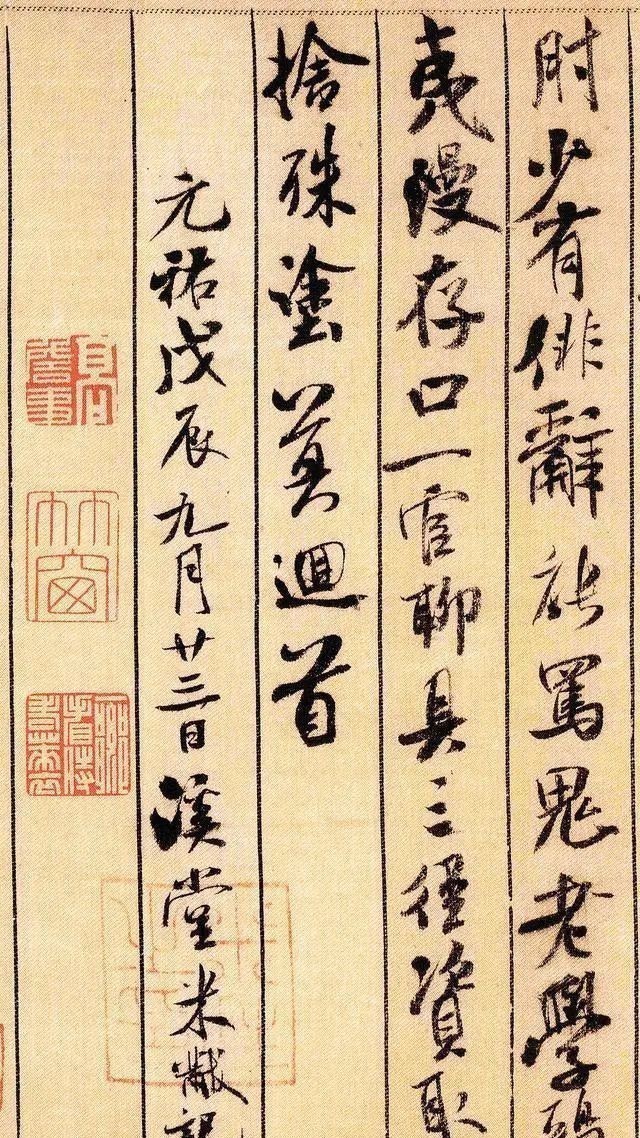 肘少有俳辭能罵鬼老學鴟
夷漫存口一官聊具三徑資取
捨殊塗莫迴首
元祐戊辰九月廿三日溪堂米黻記
竹窗